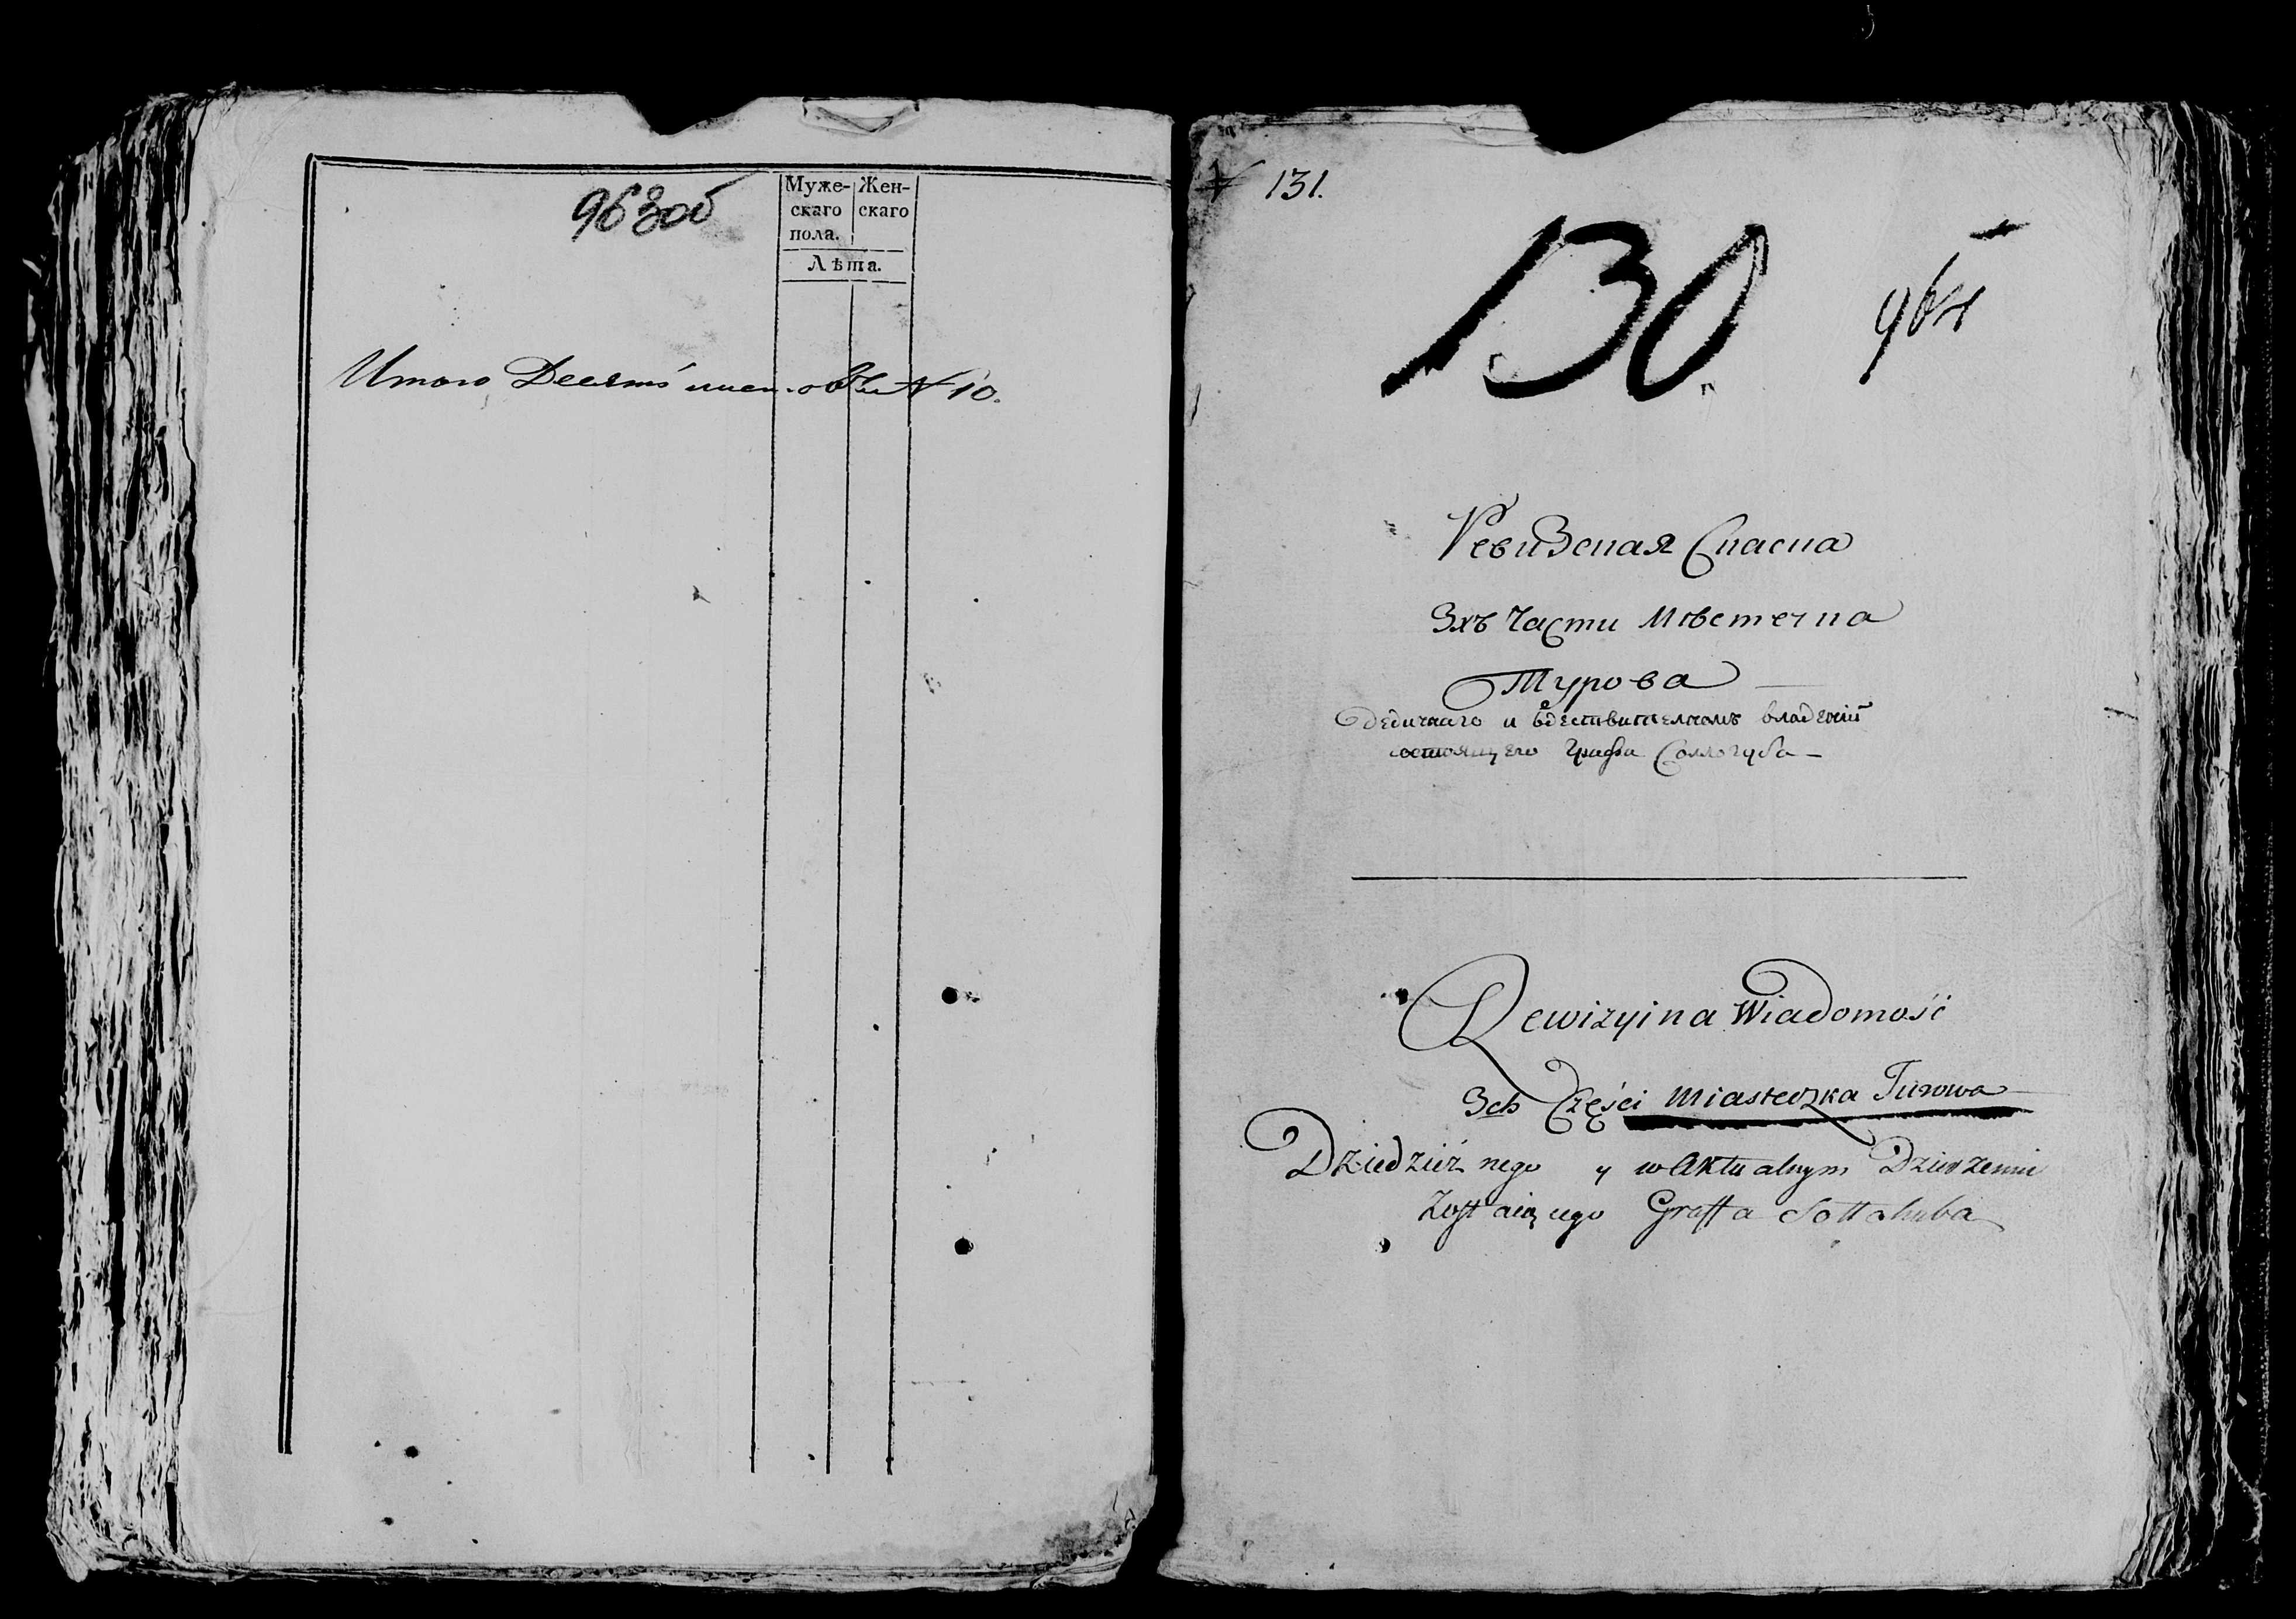 963об
Муже- Жен-
скаго скаго
пола.
Лѣта.
Итого Десять № 10.
№ 131.
130
964
Ревизская Сказка
3хъ Части Мѣстечка
Турова
Дедичнаго и вдествителномъ владенiи
состоящего Графа Соллогуба —
Rewizyina Wiadomość
3ch Części Miasteczka Turowa
Dziedzicznego y w Aktualnym Dzierżeniu
Zostaiącego Graffa Sollohuba